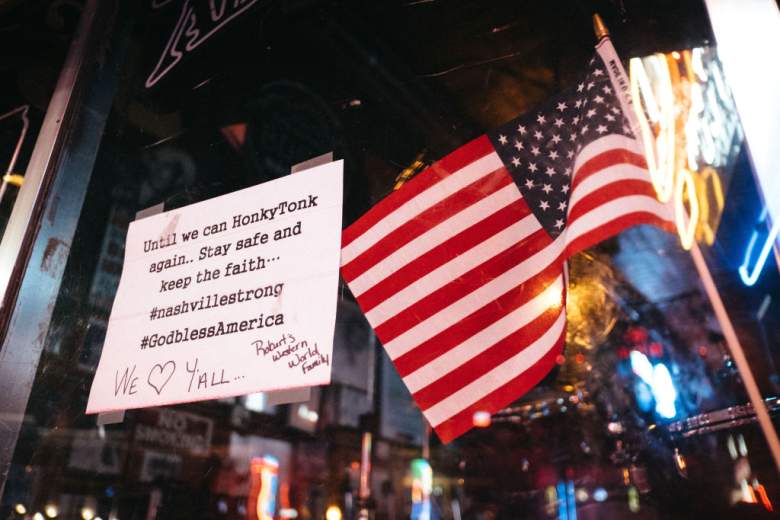 Until we can HonkyTonk
again.. Stay safe and
keep the faith...
#nashvillestrong
#GodblessAmerica
WE ♡ Y'ALL...
Robert's
Western
World
Family
NO
SMOKING